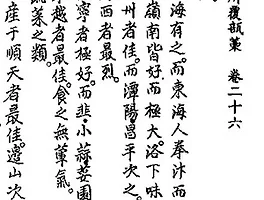 覆瓿藁 卷二十六
海有之。而東海人拳汁而
嶺南皆好。而極大。洛下味
州者佳。而潭陽昌平次之。
西者最烈。
寧者極好。而韭小蒜荽園
越者最佳。食之無葷氣。
菜之類。
産于順天者最佳。邊山次